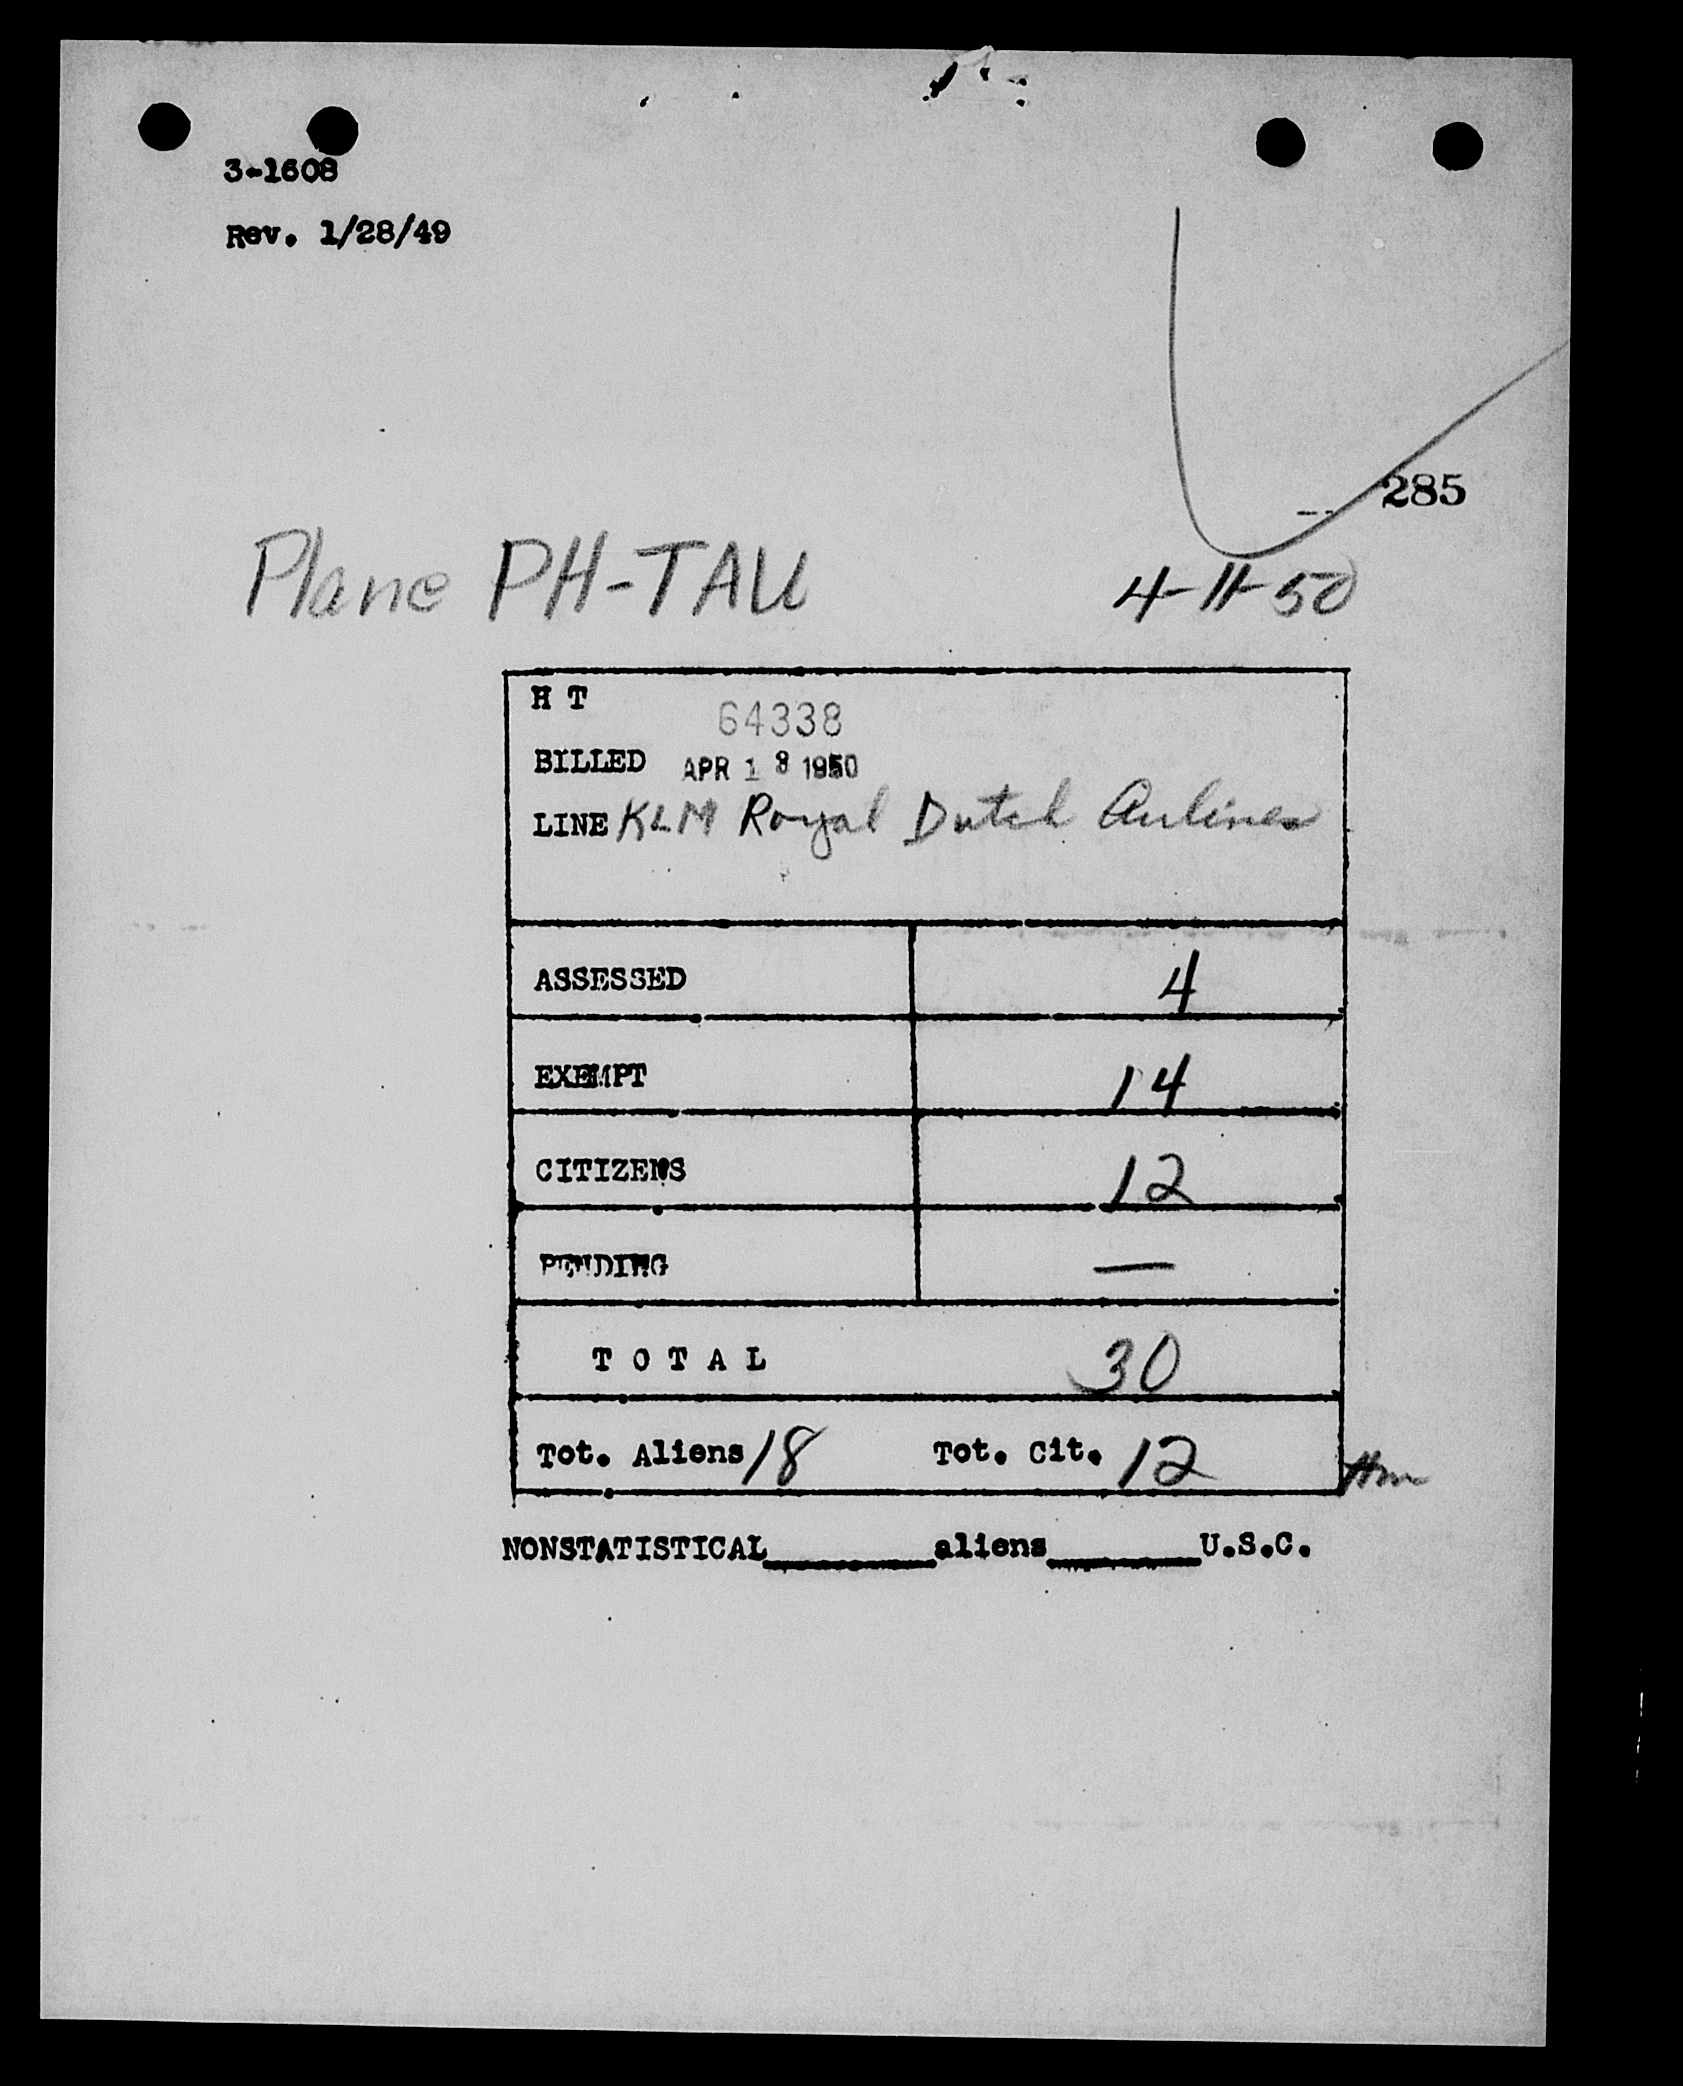 3-1608
Rev. 1/28/49
285
Plane PH-TAU 4-11-50
H T
64338
BILLED APR 18 1950
LINE KLM Royal Dutch Airlines
ASSESSED 4
EXEMPT 14
CITIZENS 12
PENDING —
T O T A L 30
Tot. Aliens 18 Tot. Cit. 12
NONSTATISTICAL________aliens________U.S.C.